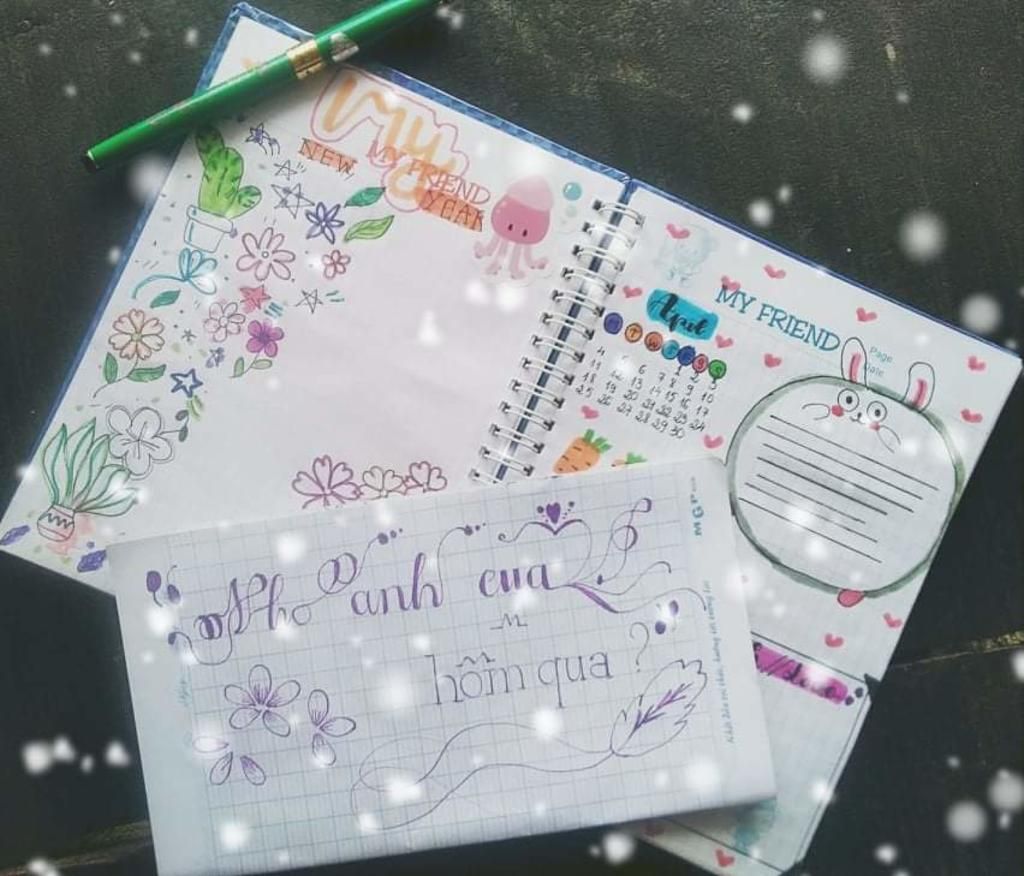 My
NEW,
MY FRIEND
YEAR
MY FRIEND
April
Page
Date
M T W T F S S
1 2 3
4 5 6 7 8 9 10
11 12 13 14 15 16 17
18 19 20 21 22 23 24
25 26 27 28 29 30
MGP
Nho anh cua
hôm qua ?